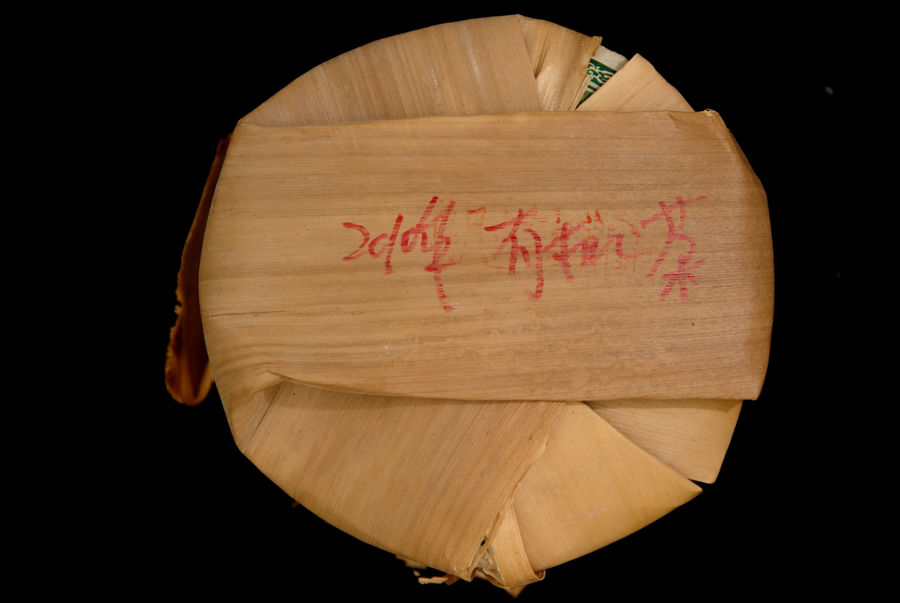 2010年 有机茶